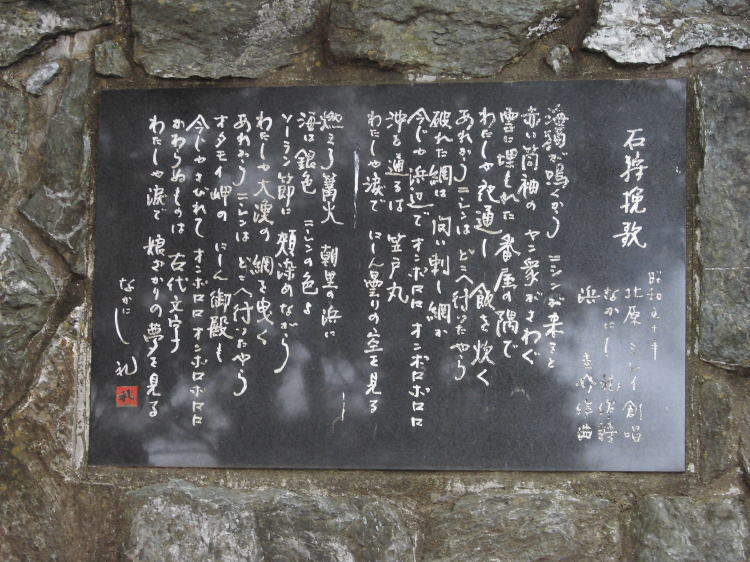 石狩挽歌
昭和五十年
北原ミレイ創唱
なかにし礼作詩
浜圭介作曲
海猫が鳴くから ニシンが来ると
赤い筒袖の ヤン衆がさわぐ
雪に埋もれた 番屋の隅で
わたしゃ夜通し 飯を炊く
あれからニシンは どこへ行ったやら
破れた網は 問い刺し網か
今じゃ浜辺で オンボロロ オンボロボロロ
沖を通るは 笠戸丸
わたしゃ涙で にしん曇りの空を見る
燃えろ篝火 朝里の浜に
海は銀色 ニシンの色よ
ソーラン節に 頬染めながら
わたしゃ大漁の 網を曳く
あれからニシンは どこへ行ったやら
オタモイ岬の にしん御殿も
今じゃさびれて オンボロロ オンボロボロロ
かわらぬものは 古代文字
わたしゃ涙で 娘ざかりの夢を見る
なかにし 礼
礼